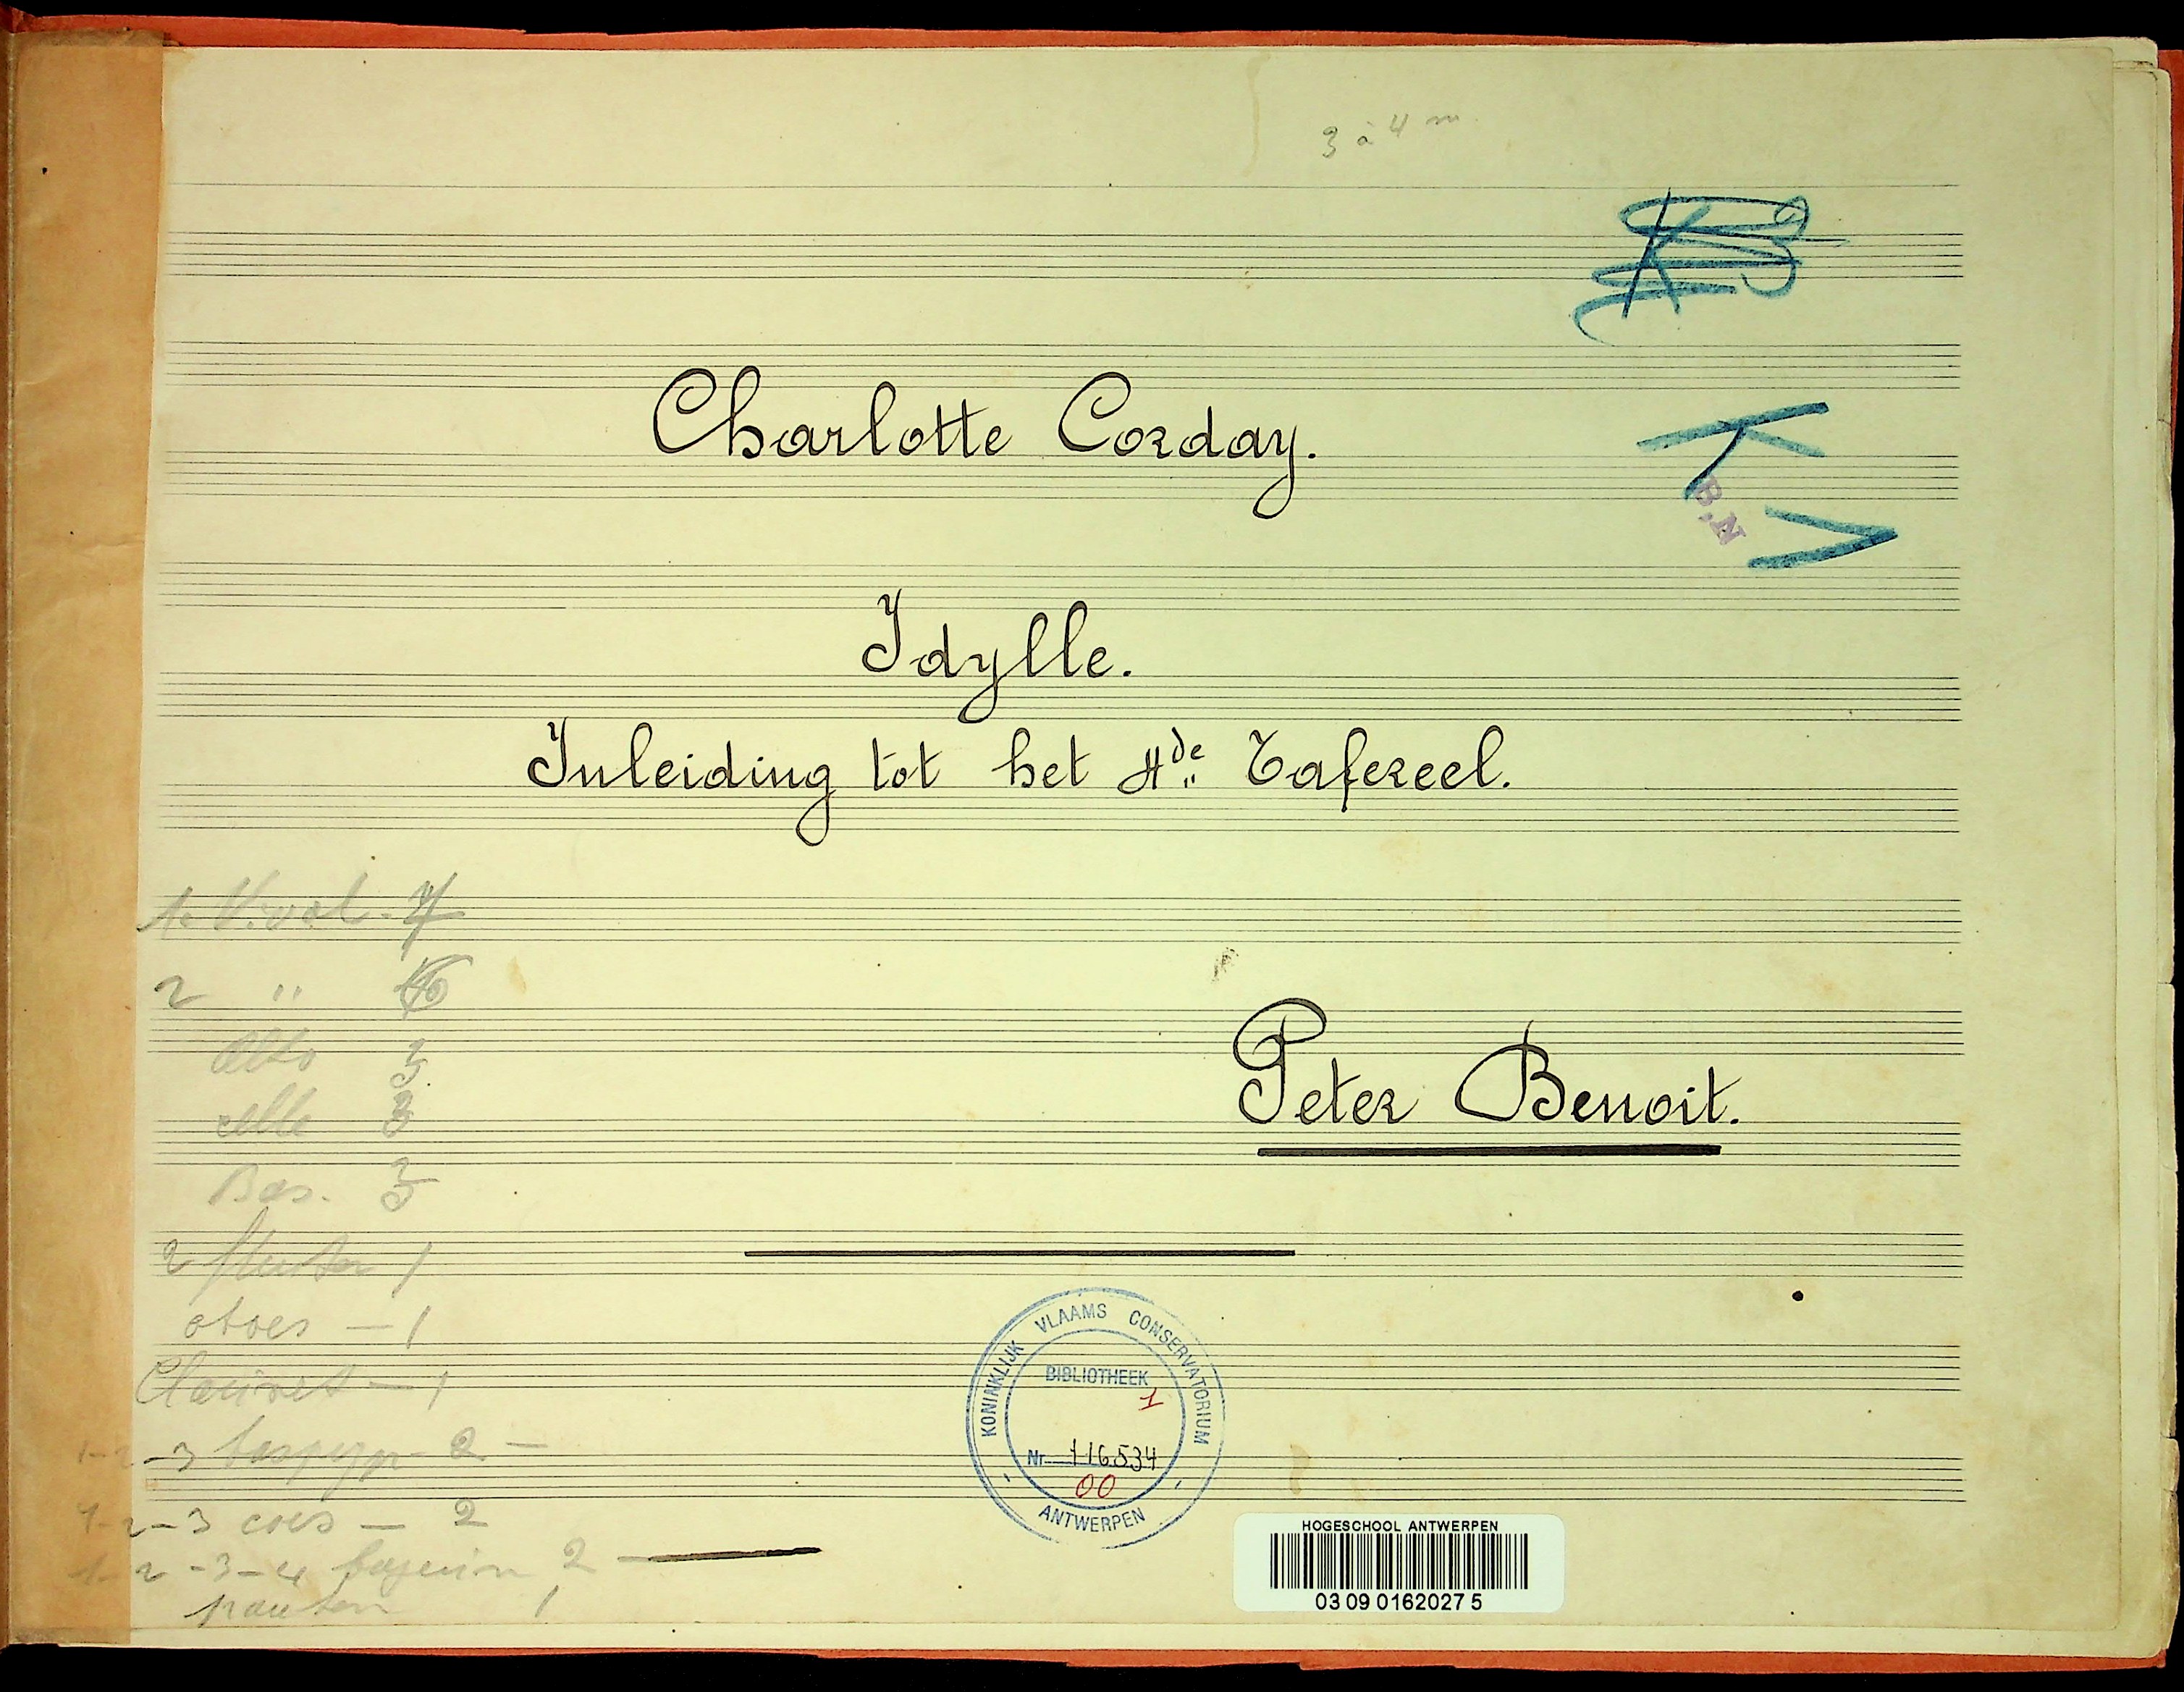 3 à 4 m
Charlotte Corday.
B,N
Idylle.
Inleiding tot het 4de Tafereel.
1e Viool - 7
2 "
Alto 3
celle 3
Bas. 3
Peter Benoit.
2 fluiten 1
oboes — 1
Clarinet — 1
1-2-3 2 —
1-2-3 cors — 2
1-2-3-4 2
pauken 1
KONINKLIJK VLAAMS CONSERVATORIUM
BIBLIOTHEEK
1
Nr 116.534
00
ANTWERPEN
HOGESCHOOL ANTWERPEN
03 09 0162027 5